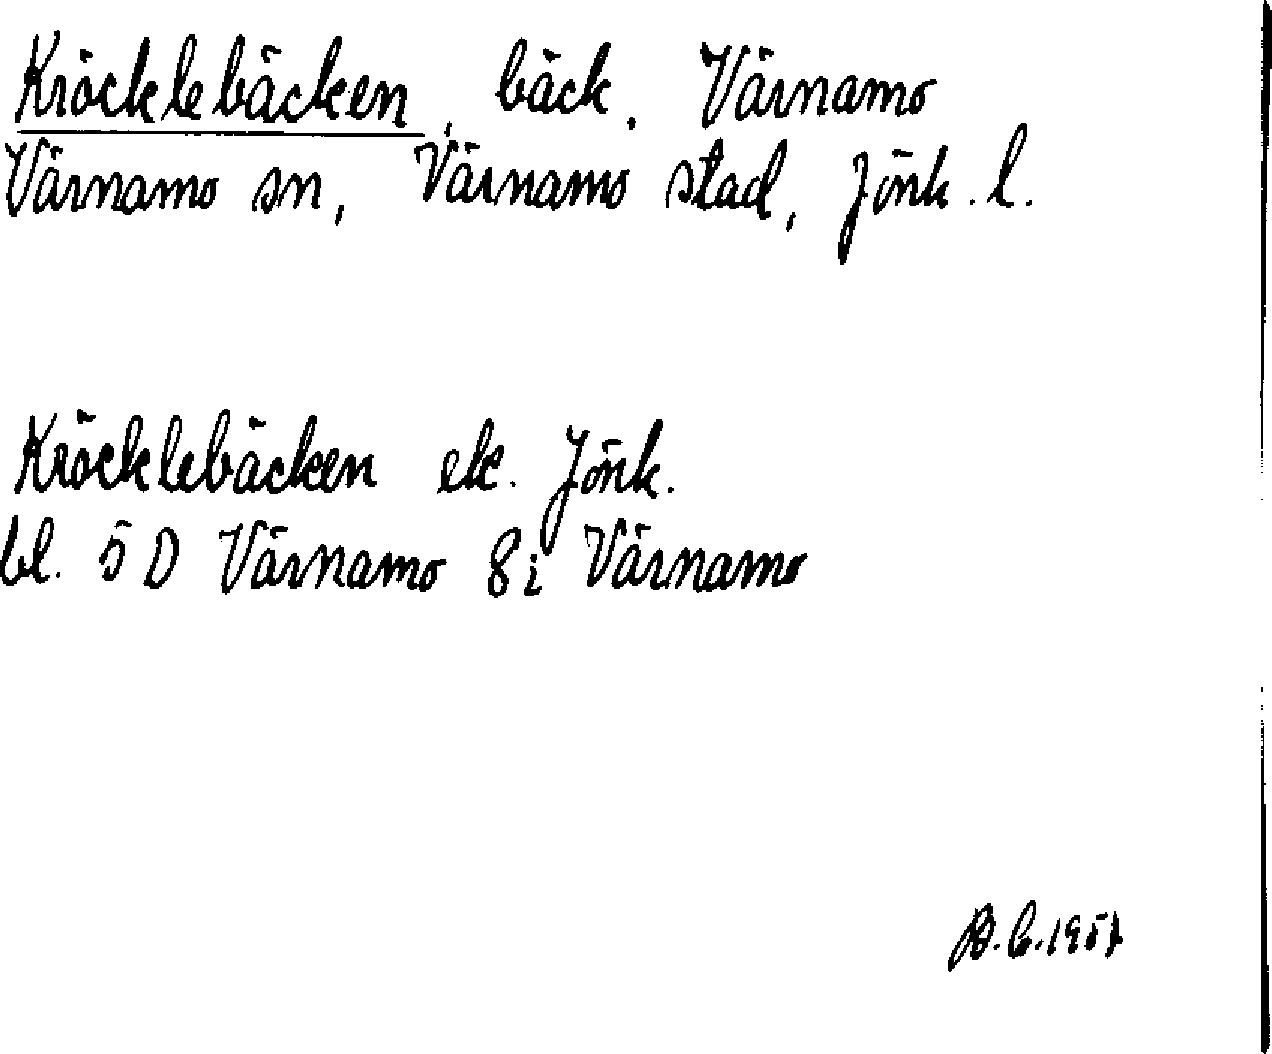 Kröcklebäcken, bäck. Värnamo
Värnamo sn, Värnamo stad, Jönk. l.
Kröcklebäcken ek. Jönk.
bl. 5 D Värnamo 8i Värnamo